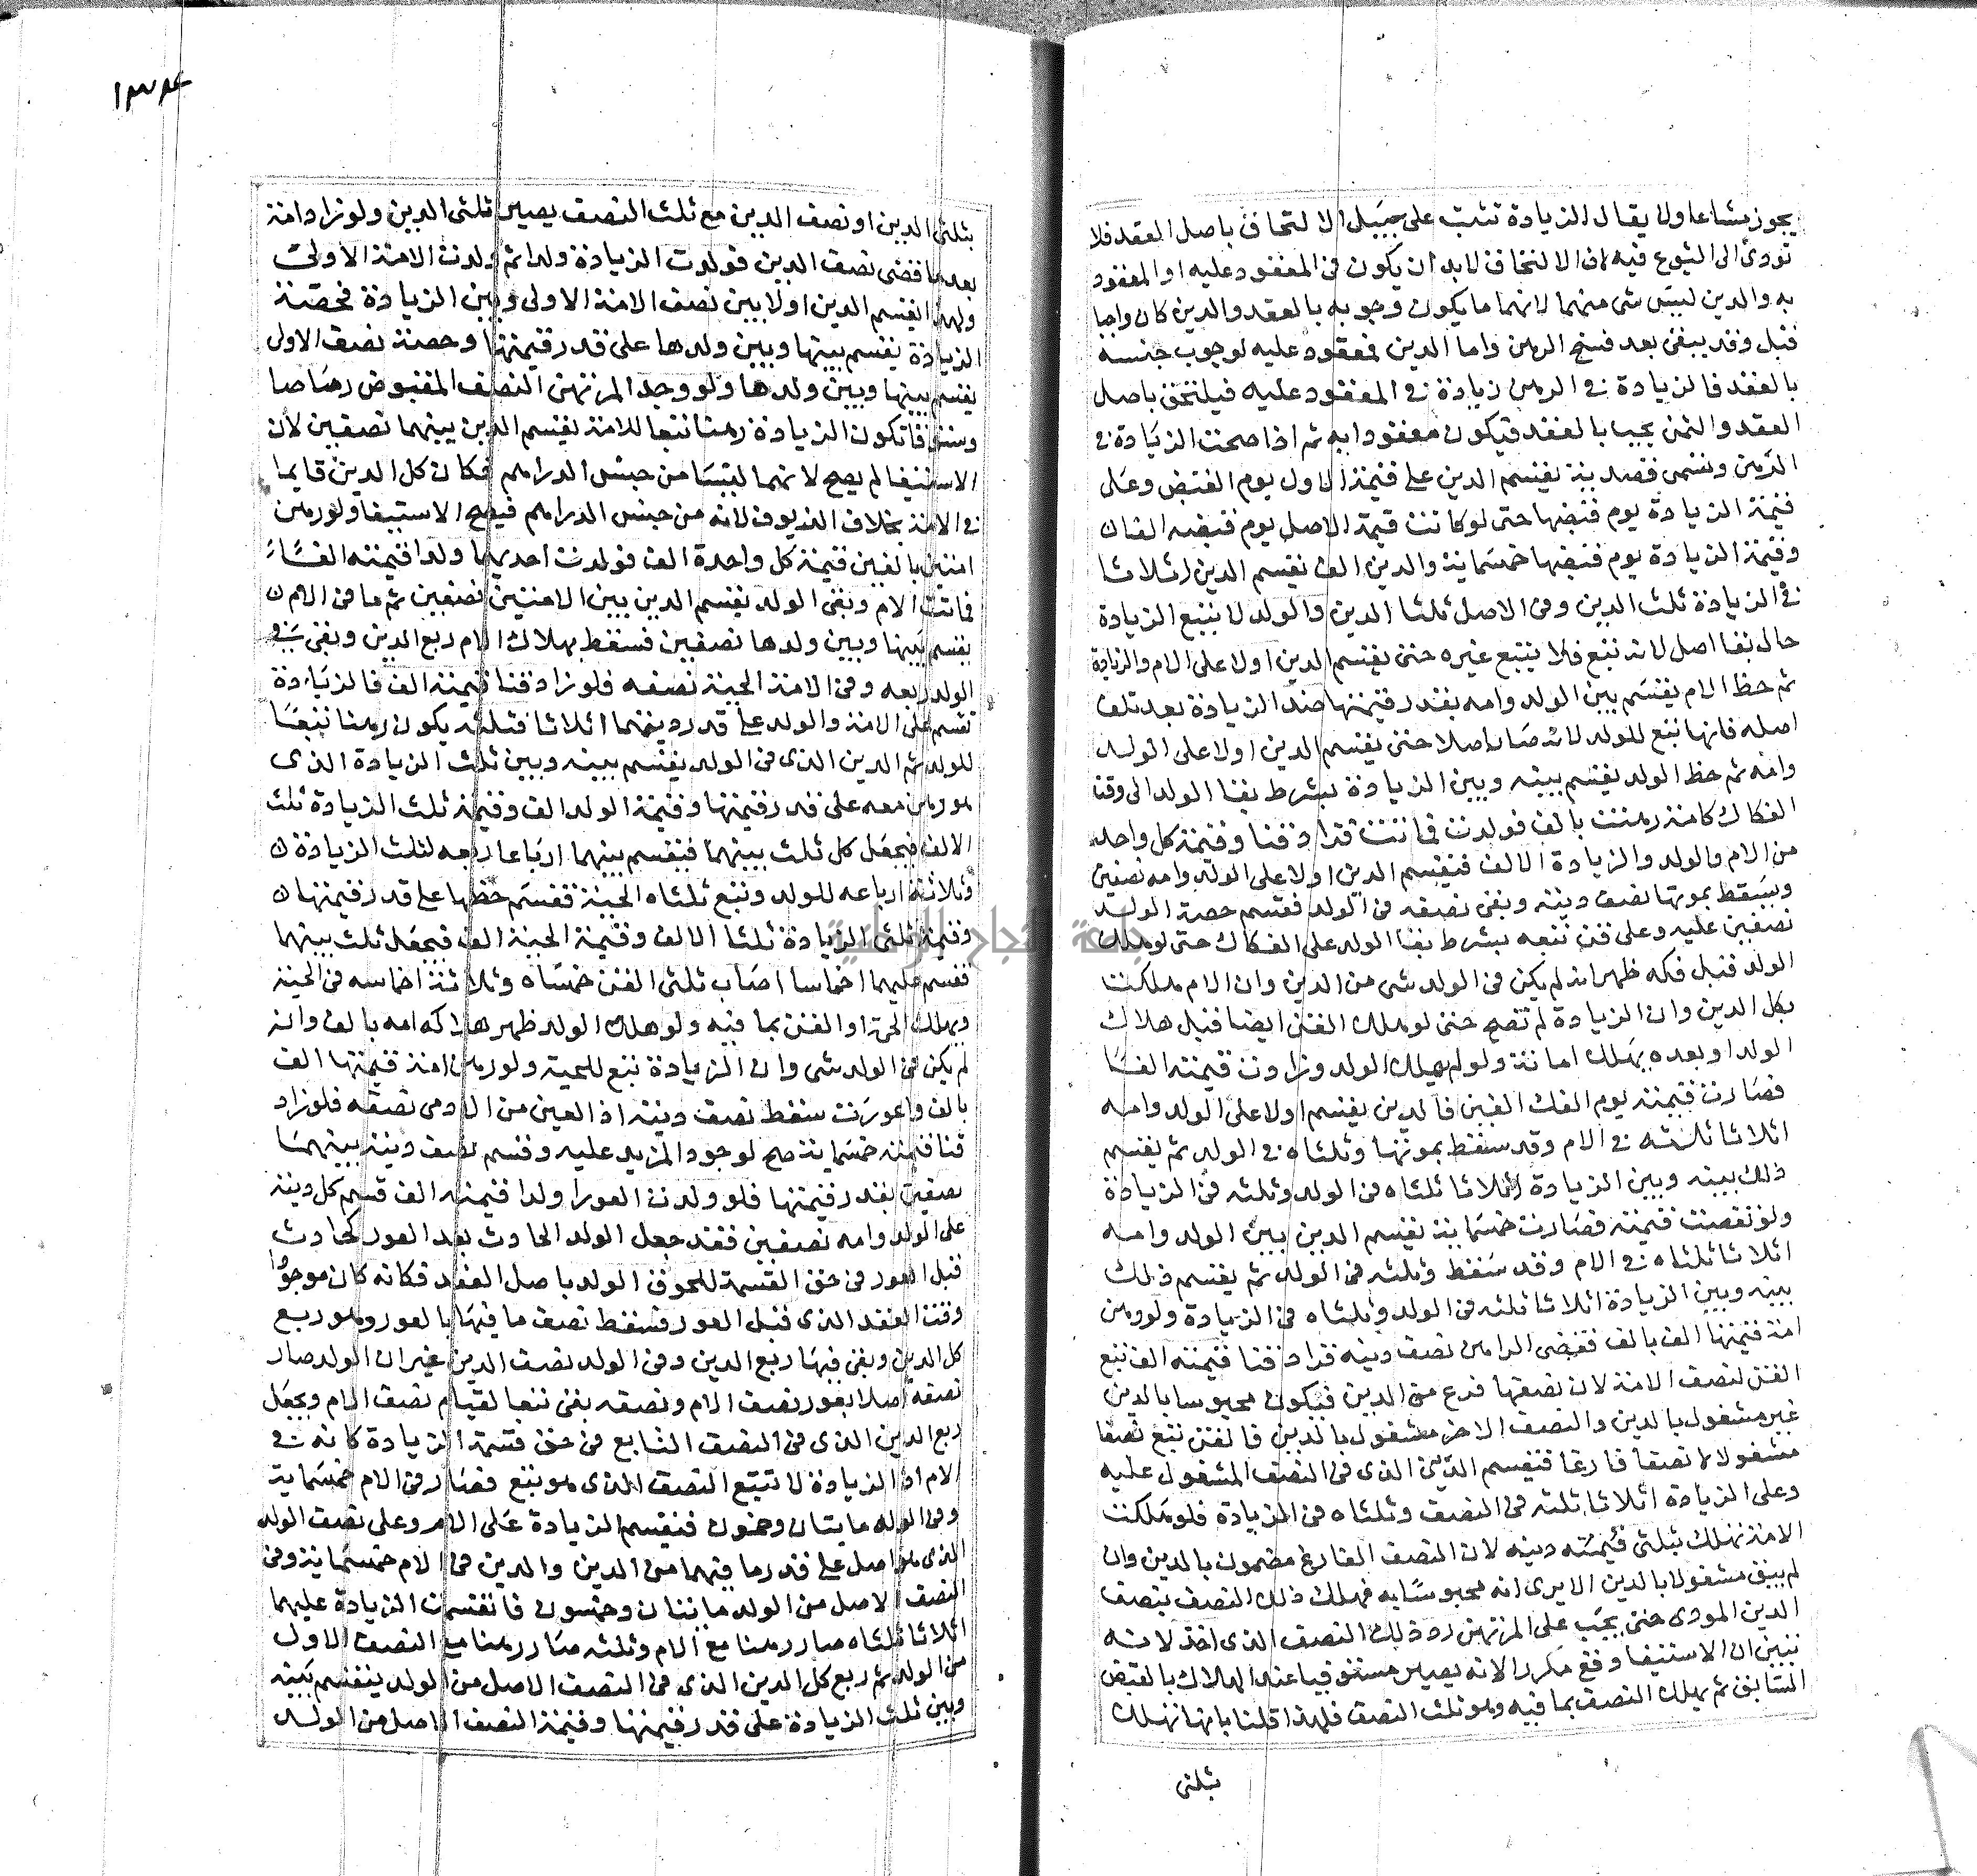 يجوز مشاعا ولا يقال الزيادة تثبت على سبيل الالتحاق باصل العقد فلا
تودى الى الشيوع فيه لان الالتحاق لا بد ان يكون فى المعقود عليه او المعقود
به والدين ليس شى منهما لانهما ما يكون وجوبه بالعقد والدين كان واجبا
قبل وقد يبقى بعد فسخ الرهن واما الدين فمعقود عليه لوجوب حبسه
بالعقد فالزيادة فى الرهن زيادة فى المعقود عليه فيلتحق باصل
العقد والثمن يجب بالعقد فيكون معقودا به ثم اذا صحت الزيادة فى
الرهن وتسمى قصدية يقسم الدين على قيمة الاول يوم القبض وعلى
قيمة الزيادة يوم قبضها حتى لو كانت قيمة الاصل يوم قبضه الفان
وقيمة الزيادة يوم قبضها خمسماية والدين الف يقسم الدين اثلاثا
فى الزيادة ثلث الدين وفى الاصل ثلثا الدين والولد لا يتبع الزيادة
حال بقا اصل لانه تبع فلا يتبع غيره حتى يقسم الدين اولا على الام والزيادة
ثم حظ الام يقسم بين الولد وامه بقدر قيمتها ضد الزيادة بعد تلف
اصله فانها تبع للولد لانه صار اصلا حتى يقسم الدين اولا على الولد
وامه ثم حظ الولد يقسم بينه وبين الزيادة بشرط بقا الولد الى وقت
الفكاك كامة رهنت بالف فولدت فماتت فزاد قنا وقيمة كل واحد
من الام والولد والزيادة الالف فيقسم الدين اولا على الولد وامه نصفين
ويسقط بموتها نصف دينه وبقى نصفه فى الولد فقسم حصة الولد
نصفين عليه وعلى قن تبعه بشرط بقا الولد على الفكاك حتى لو هلك
الولد قبل فكه ظهر انه لم يكن فى الولد شى من الدين وان الام هلكت
بكل الدين وان الزيادة لم تصح حتى لو هلك القن ايضا قبل هلاك
الولد او بعده يهلك امانة ولو لم يهلك الولد وزادت قيمته الفا
فصارت قيمته يوم الفك الفين فالدين يقسم اولا على الولد وامه
اثلاثا ثلثه فى الام وقد سقط بموتها وثلثاه فى الولد ثم يقسم
ذلك بينه وبين الزيادة اثلاثا ثلثاه فى الولد وثلثه فى الزيادة
ولو نقصت قيمته فصارت خمسماية يقسم الدين بين الولد وامه
اثلاثا ثلثاه فى الام وقد سقط وثلثه فى الولد ثم يقسم ذلك
بينه وبين الزيادة اثلاثا ثلثه فى الولد وثلثاه فى الزيادة ولو رهن
امة قيمتها الف بالف فقضى الراهن نصف دينه فزاد قنا قيمته الف تبع
القن لنصف الامة لان نصفها فرغ من الدين فيكون محبوسا بالدين
غير مشغول بالدين والنصف الاخر مشغول بالدين فالقن تبع نصفا
مشغولا لا نصفا فارغا فيقسم الدين الذى فى النصف المشغول عليه
وعلى الزيادة اثلاثا ثلثه فى النصف وثلثاه فى الزيادة فلو هلكت
الامة تهلك بثلثى قيمته دينه لان النصف الفارغ مضمون بالدين وان
لم يبق مشغولا بالدين الا يرى انه محبوسا به فهلك ذلك النصف بنصف
الدين المودى حتى يجب على المرتهن رد ذلك النصف الذى اخذ لانه
تبين ان الاستيفا وقع مكررا لانه يصير مستوفيا عند الهلاك بالقبض
السابق ثم يهلك النصف بما فيه وهو ثلث النصف فلهذا قلنا بانها تهلك
بثلثى
١٣٣٤
بثلثى الدين او نصف الدين مع ثلث النصف يصير ثلثى الدين ولو زاد امة
بعدما قضى نصف الدين فولدت الزيادة ولدا ثم ولدت الامة الاولى
ولدا يقسم الدين اولا بين نصف الامة الاولى وبين الزيادة فحصة
الزيادة يقسم بينها وبين ولدها على قدر قيمتها وحصة نصف الاولى
يقسم بينها وبين ولدها ولو وجد المرتهن النصف المقبوض رصاصا
وستوقا تكون الزيادة رهنا تبعا للامة يقسم الدين بينهما نصفين لان
الاستيفا لم يصح لانهما ليسا من جنس الدراهم فكان كل الدين قايما
فى الامة بخلاف الزيوف لانه من جنس الدراهم فيصح الاستيفا ولو رهن
امتين بالفين قيمة كل واحدة الف فولدت احديهما ولدا قيمته الف
فماتت الام وبقى الولد يقسم الدين بين الامتين نصفين ثم ما فى الام
يقسم بينها وبين ولدها نصفين فسقط بهلاك الام ربع الدين وبقى فى
الولد ربعه وفى الامة الحية نصفه فلو زاد قنا قيمته الف فالزيادة
تقسم على الامة والولد على قدر دينهما اثلاثا فثلثه يكون رهنا تبعا
للولد ثم الدين الذى فى الولد يقسم بينه وبين ثلث الزيادة الذى
هو رهن معه على قدر قيمتها وقيمة الولد الف وقيمة ثلث الزيادة ثلث
الالف فيجعل كل ثلث بينهما فيقسم بينهما ارباعا ربعه لثلث الزيادة
وثلاثة ارباعه للولد وتبع ثلثاه الحية فقسم حظها على قدر قيمتها
وقيمة ثلثى الزيادة ثلثا الالف وقيمة الحية الف فيجعل ثلث بينهما
فقسم عليهما اخماسا اصاب ثلثى القن خمساه وثلاثة اخماسه فى الحية
ويهلك الحية او القن بما فيه ولو هلك الولد ظهر هلاكه امه بالف وانه
لم يكن فى الولد شى وان الزيادة تبع للحية ولو رهن امة قيمتها الف
بالف واعورت سقط نصف دينه اذ العين من الادمى نصفه فلو زاد
قنا قيمته خمسماية صح لوجود المزيد عليه وقسم نصف دينه بينهما
نصفين بقدر قيمتها فلو ولدت العورا ولدا قيمته الف قسم كل دينه
على الولد وامه نصفين فقد جعل الولد الحادث بعد العور كحادث
قبل العور فى حق القسمة للحوق الولد باصل العقد فكانه كان موجودا
وقت العقد الذى قبل العور فسقط نصف ما فيها بالعور وهو ربع
كل الدين وبقى فيها ربع الدين وفى الولد نصف الدين غير ان الولد صار
نصفه اصلا بعور نصف الام ونصفه بقى تبعا لقيام نصف الام ويجعل
ربع الدين الذى فى النصف التابع فى حق قسمة الزيادة كانه فى
الام اذ الزيادة لا تتبع النصف الذى هو تبع فصار فى الام خمسماية
وفى الولد مايتان وخمسون فيقسم الزيادة على الام وعلى نصف الولد
الذى هو اصل على قدر ما فيهما من الدين والدين فى الام خمسماية وفى
النصف الاصل من الولد مايتان وخمسون فانقسمت الزيادة عليهما
اثلاثا ثلثاه صار رهنا مع الام وثلثه صار رهنا مع النصف الاول
من الولد ثم ربع كل الدين الذى فى النصف الاصل من الولد ينقسم بينه
وبين ثلث الزيادة على قدر قيمتها وقيمة النصف الاصل من الولد
جامعة النجاح الوطنية